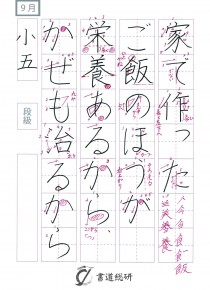 9月
小五
段級
家で作った
ご飯のほうが
栄養あるから、
かぜも治るから
人今食食飯
書道総研